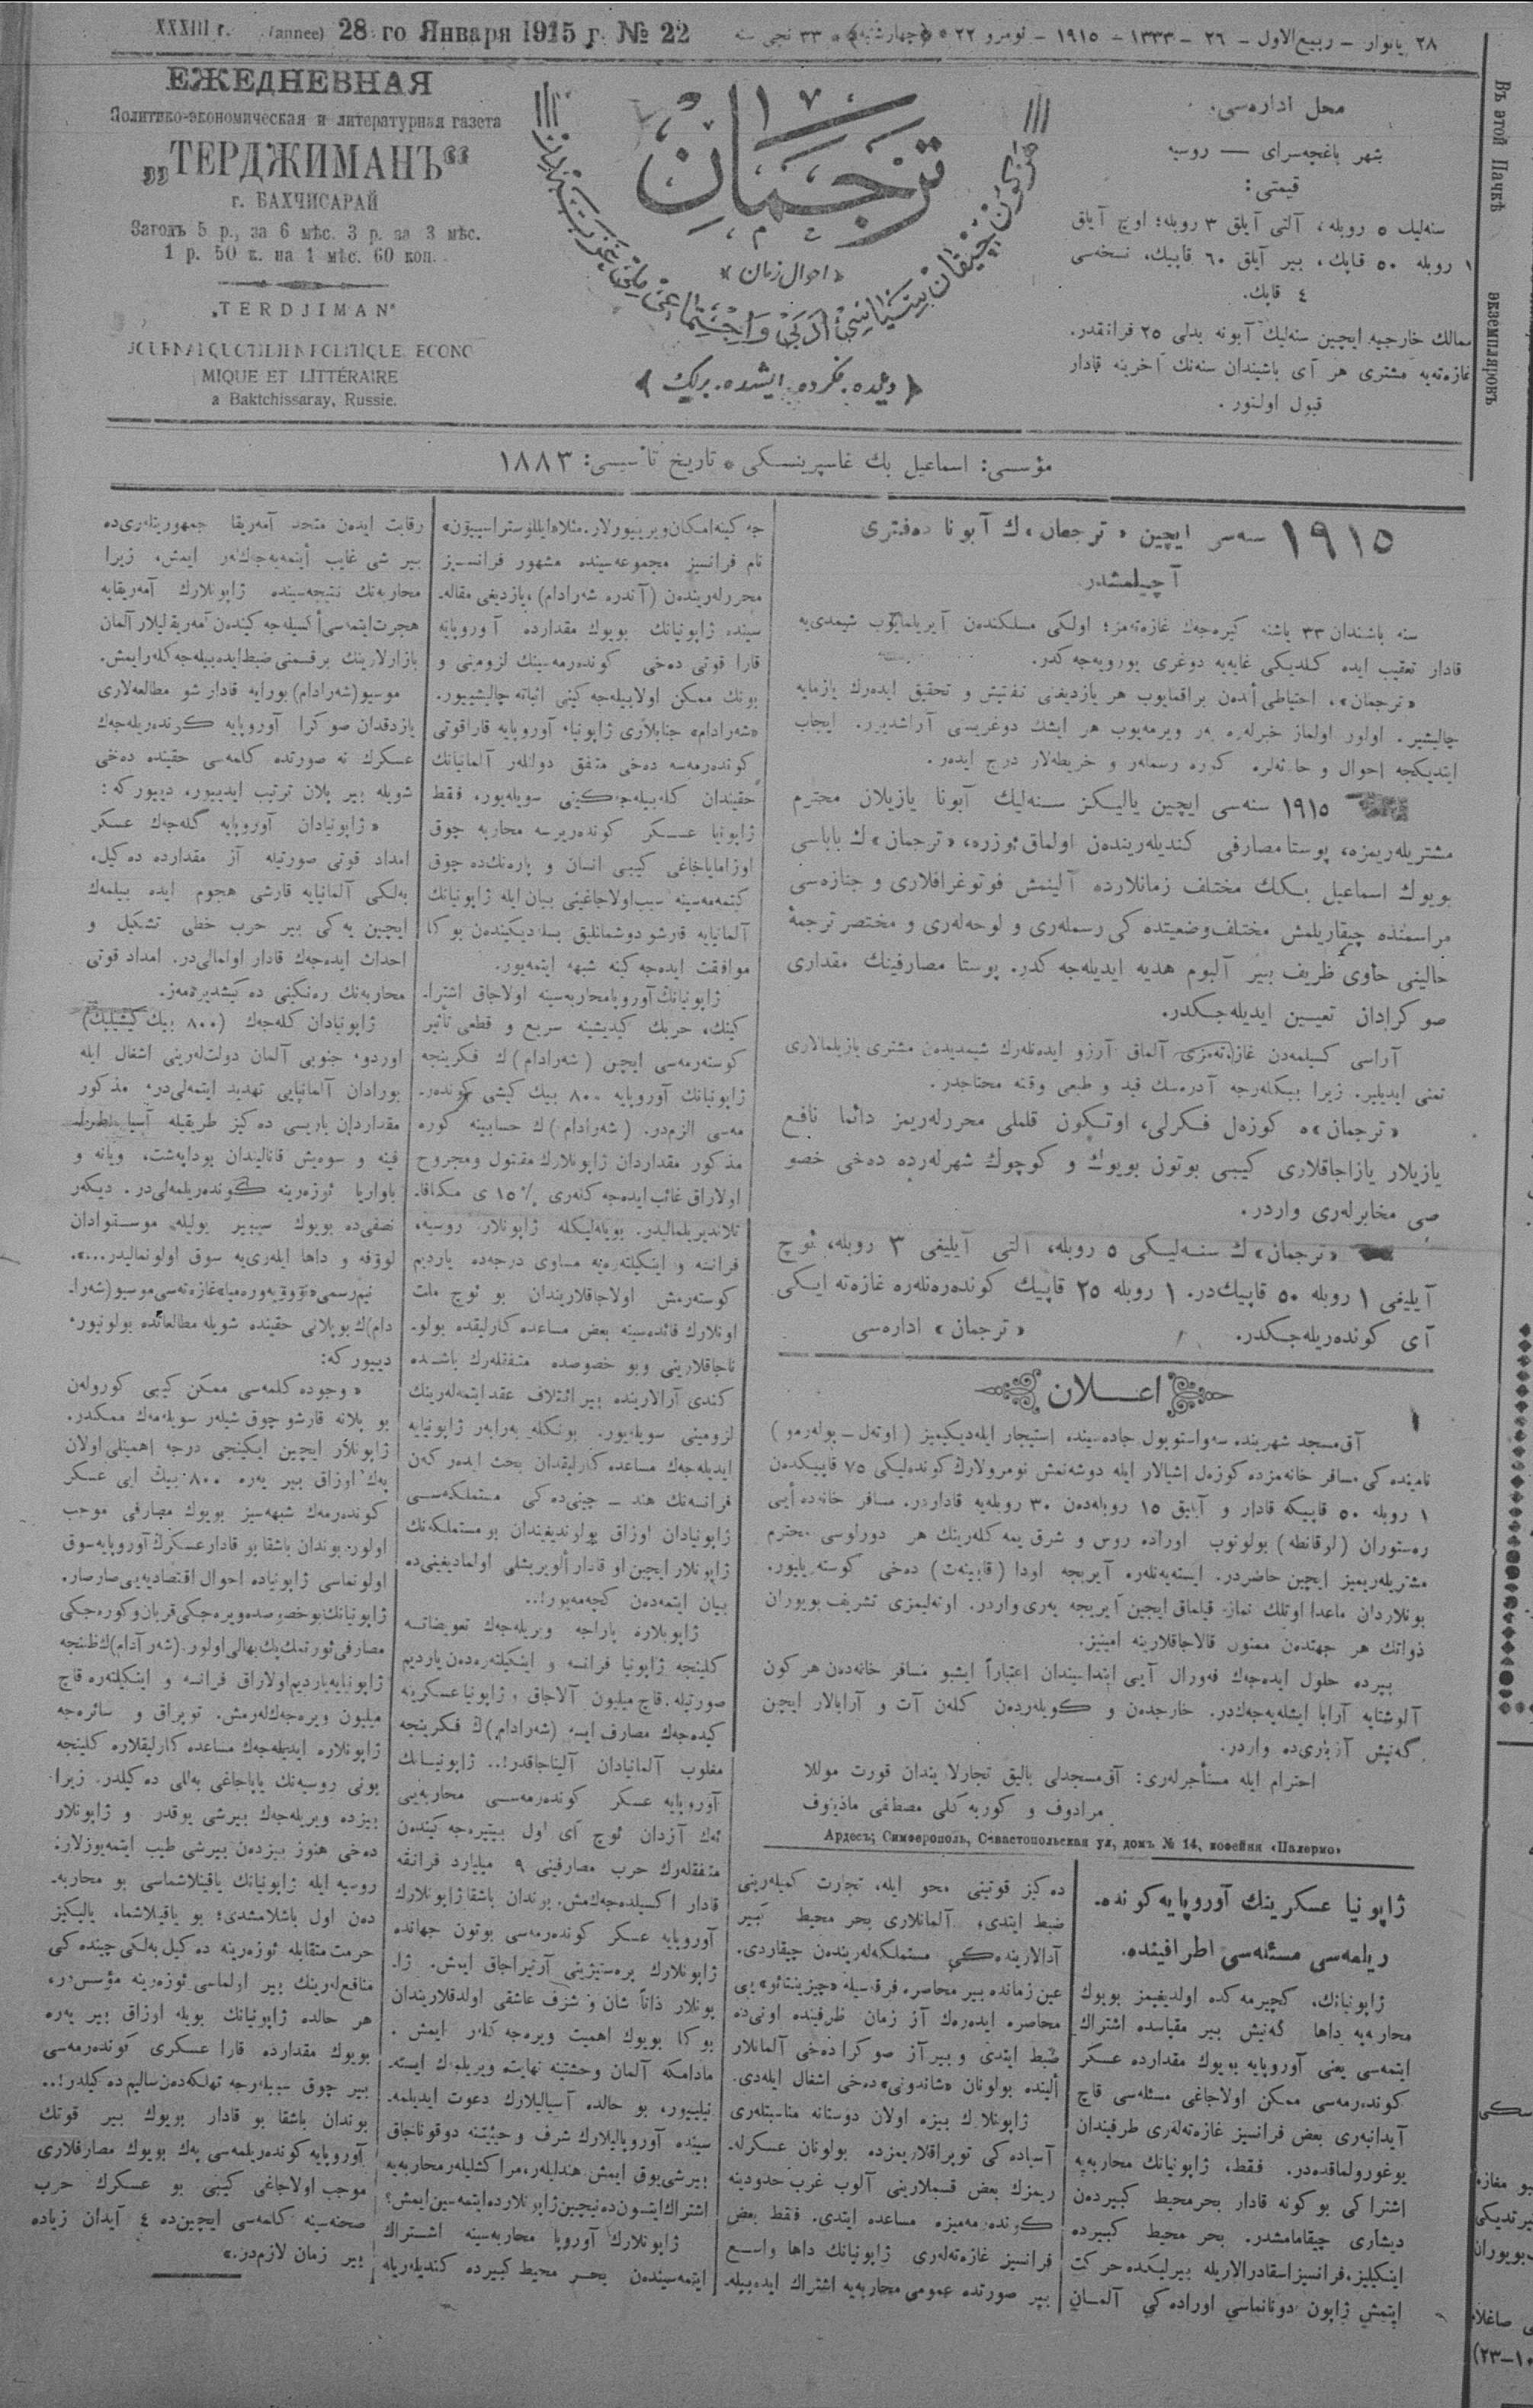 XXXIII г. (annee) 28 го Января 1915 г. № 22
٢٨ يانوار – ربيع الاول – ٢٦ – ١٣٣٣ – ١٩١٥ – نومرو ٢٢ * (چهارشنبه) * ٣٣ نجى سنه
ЕЖЕДНЕВНАЯ
Политико-экономическая и литературная газета
„ТЕРДЖИМАНЪ“
г. БАХЧИСАРАЙ
За годъ 5 р., за 6 мѣс. 3 р. за 3 мѣс.
1 р. 50 к. на 1 мѣс. 60 коп.
„TERDJIMAN“
JOURNAL QUOTIDIEN POLITIQUE, ECONO
MIQUE ET LITTÉRAIRE
a Baktchissaray, Russie.
ترجمان
﴿احوال زمان﴾
﴿ديلده. فكرده. ايشده. برلك﴾
محل اداره‌سى.
شهر باغچه‌سراى — روسيه
قيمتى:
سنه‌ليك ٥ روبله، آلتى آيلق ٣ روبله؛ اوچ آيلق
١ روبله ٥٠ قاپك، بير آيلق ٦٠ قاپيك، نسخه‌سى
٤ قاپك.
ممالك خارجيه ايچين سنه‌ليك آبونه بدلى ٢٥ فرانقدر.
غازه‌ته‌يه مشترى هر آى باشيندان سنه‌نك آخرينه قادار
قبول اولنور.
Въ этой Пачкѣ
экземпляровъ
مؤسسى: اسماعيل بك غاسپرينسكى * تاريخ تأسيسى: ١٨٨٣
١٩١٥ سنه‌سى ايچين «ترجمان» ك آبونا ده‌فترى
آچيلمشدر
سنه باشندان ٣٣ ياشنه كيره‌جك غازه‌ته‌مز؛ اولكى مسلكندن آيريلمايوب شيمدى‌يه
قادار تعقيب ايده كلديكى غايه‌يه دوغرى يورويه‌جه‌كدر.
«ترجمان»، احتياطى ألدن براقمايوب هر يازديغنى تفتيش و تحقيق ايده‌رك يازمايه
چاليشير. اولور اولماز خبرلره ير ويرمه‌يوب هر ايشك دوغريسنى آراشديرر. ايجاب
ايتديكجه احوال و حادثه‌لره كوره رسملر و خريطه‌لار درج ايدر.
١٩١٥ سنه‌سى ايچين ياليكز سنه‌ليك آبونا يازيلان محترم
مشتريله‌ريمزه، پوستا مصارفى كنديله‌ريندن اولماق ئوزره، «ترجمان» ك باباسى
بويوك اسماعيل بكك مختلف زمانلارده آلينمش فوتوغرافلارى و جنازه‌سى
مراسمنده چيقاريلمش مختلف وضعيتده كى رسمله‌رى و لوحه‌له‌رى و مختصر ترجمۀ
حالينى حاوى ظريف بير آلبوم هديه ايديله‌جه‌كدر. پوستا مصارفينك مقدارى
صوكرادان تعيين ايديله‌جكدر.
آراسى كسيلمه‌دن غازه‌ته‌مزى آلماق آرزو ايده‌نله‌رك شيمديدن مشترى يازيلمالارى
تمنى ايديلير. زيرا بيكله‌رجه آدره‌سك قيد و طبعى وقته محتاجدر.
«ترجمان» ه كوزه‌ل فكرلى، اوتكون قلملى محررله‌ريمز دائما نافع
يازيلار يازاجاقلارى كيبى بوتون بويوك و كوچوك شهرله‌رده ده‌خى خصو
صى مخابرله‌رى واردر.
«ترجمان» ك سنه‌ليكى ٥ روبله، آلتى آيليغى ٣ روبله، ئوچ
آيليغى ١ روبله ٥٠ قاپيك‌در. ١ روبله ٢٥ قاپيك كونده‌ره‌نله‌ره غازه‌ته ايكى
آى كونده‌ريله‌جكدر. «ترجمان» اداره‌سى
اعلان
آق‌مسجد شهرينده سه‌واستوپول جاده‌سينده استيجار ايله‌ديكيميز (اوته‌ل – پوله‌رمو)
نامينده كى مسافر خانه‌مزده كوزه‌ل اشيالار ايله دوشه‌نمش نومرولارڭ كونده‌ليكى ٧٥ قاپيكدن
١ روبله ٥٠ قاپيكه قادار و آيليق ١٥ روبله‌دن ٣٠ روبله‌يه قادادر. مسافر خانه‌ده أيى
ره‌ستوران (لوقانطه) بولونوب اوراده روس و شرق يمه كله‌رينك هر دورلوسى محترم
مشتريله‌ريميز ايچين حاضردر. ايسته‌يه‌نله‌ره آيريجه اودا (قابينه‌ت) ده‌خى كوسته‌ريليور.
بونلاردان ماعدا اوتلك نماز قيلماق ايچين آيريجه يه‌رى واردر. اوته‌ليمزى تشريف بويوران
ذواتك هر جهتدن ممنون قالاجاقلارينه امينيز.
بيرده حلول ايده‌جه‌ك فه‌ورال آيى ابتداسيندان اعتباراً ايشبو مسافر خانه‌دن هر كون
آلوشتايه آرابا ايشله‌يه‌جه‌كدر. خارجدن و كويله‌ردن كله‌ن آت و آرابالار ايچين
گه‌نيش آزبارى‌ده واردر.
احترام ايله مستأجرله‌رى: آق‌مسجدلى باليق تجارلا يندان قورت موللا
مرادوف و كوربه كلى مصطفى ماذينوف
Ардесъ; Симферополь, Севастопольская ул, домъ № 14, кофейня «Палермо»
ژاپونيا عسكرينك آوروپايه كونده‌
ريلمه‌سى مسئله‌سى اطرافينده.
ژاپونيانك، كچيرمه كده اولديغيمز بويوك
محاربه‌يه داها گه‌نيش بير مقياسده اشتراك
ايتمه‌سى يعنى آوروپايه بويوك مقدارده عسكر
كونده‌رمه‌سى ممكن اولاجاغى مسئله‌سى قاچ
آيدانبه‌رى بعض فرانسيز غازه‌ته‌له‌رى طرفيندان
يوغورولماقده‌در. فقط، ژاپونيانك محاربه‌يه
اشتراكى بو كونه قادار بحر محيط كبيردن
ديشارى چيقمامشدر. بحر محيط كبيرده
اينكيليز، فرانسيز اسقادرالاريله بيرليكده حركت
ايتمش ژاپون دونانماسى اوراده كى آلمان
ده‌كيز قوتينى محو ايله، تجارت كميله‌رينى
ضبط ايتدى؛ آلمانلارى بحر محيط كبير
آدالارينده‌كى مستملكه‌له‌ريندن چيقاردى.
عين زمانده بير محاصره فرقه‌سيله «چيزينتائو» يى
محاصره ايده‌ره‌ك آز زمان ظرفينده اونى‌ده
ضبط ايتدى و بير آز صوكرا ده‌خى آلمانلار
ألينده بولونان «شاندونى» ده‌خى اشغال ايله‌دى.
ژاپونلارك بيزه اولان دوستانه مناسبتله‌رى
آسياده كى توپراقلاريمزده بولونان عسكرله‌
ريمزك بعض قسملارينى آلوب غرب حدودينه
كونده‌رمه‌ميزه مساعده ايتدى. فقط بعض
فرانسيز غازه‌ته‌له‌رى ژاپونيانك داها واسع
بير صورتده عمومى محاربه‌يه اشتراك ايده‌بيله‌
جه كينه امكان ويرييورلار. مثلا «ايللوستراسييون»
نام فرانسيز مجموعه‌سينده مشهور فرانسيز
محررله‌ريندن (آندره شه‌رادام)، يازديغى مقاله‌
سينده ژاپونيانك بويوك مقدارده آوروپايه
قارا قوتى ده‌خى كونده‌رمه‌سينك لزومينى و
بونك ممكن اولابيله‌جه كينى اثباته چاليشييور.
«شه‌رادام» جنابلارى ژاپونيا، آوروپايه قارا قوتى
كونده‌رمه‌سه ده‌خى متفق دولتلر آلمانيانك
حقيندان كله‌بيله‌جه‌كينى سويله‌يور، فقط
ژاپونيا عسكر كونده‌ريرسه محاربه چوق
اوزاماياجاغى كيبى انسان و پاره‌نك‌ده چوق
كيتمه‌مه‌سينه سبب اولاجاغينى بيان ايله ژاپونيانك
آلمانيايه قارشو دوشمانليق بسله‌ديكيندن بو كا
موافقت ايده‌جه كينه شبهه ايتمه‌يور.
ژاپونيانك آوروپا محاربه‌سينه اولاجاق اشترا-
كينك، حربك كيديشينه سريع و قطعى تأثير
كوسته‌رمه‌سى ايچين (شه‌رادام) ك فكرينجه
ژاپونيانك آوروپايه ٨٠٠ بيك كيشى كونده‌ر-
مه‌سى الزم‌در. (شه‌رادام) ك حسابينه كوره
مذكور مقداردان ژاپونلارك مقتول و مجروح
اولاراق غائب ايده‌جه كله‌رى ٪١٥ ى مكافا-
تلانديريلماليدر. بويله‌ليكله ژاپونلار، روسيه،
فرانسه و اينكيلته‌ره‌يه مساوى درجه‌ده يارديم
كوسته‌رمش اولاجاقلاريندان بو ئوچ ملت
اونلارك فائده‌سينه بعض مساعده كارليقده بولو-
ناجاقلارينى و بو خصوصده متفقله‌رك باشده
كندى آرالارينده بير ائتلاف عقد ايتمه‌له‌رينك
لزومينى سويله‌يور. بونكله برابر ژاپونيايه
ايديله‌جه‌ك مساعده كارليقدان بحث ايده‌ر كه‌ن
فرانسه‌نك هند – چينى‌ده كى مستملكه‌سى
ژاپونيادان اوزاق بولونديغيندان بو مستملكه‌نك
ژاپونلار ايچين او قادار ألويريشلى اولماديغينى‌ده
بيان ايتمه‌دن كچمه‌يور!..
ژاپونلاره پاراجه ويريله‌جه‌ك تعويضاته
كلينجه ژاپونيا فرانسه و اينكيلته‌ره‌دن يارديم
صورتيله. قاچ ميليون آلاجاق، ژاپونيا عسكرينه
كيده‌جه‌ك مصارف ايسه (شه‌رادام) ڭ فكرينجه
مغلوب آلمانيادان آليناجاقدر!.. ژاپونيانك
آوروپايه عسكر كونده‌رمه‌سى محاربه‌يى
ئه‌ك آزدان ئوچ آى اول بيتيره‌جه كيندن
متفقله‌رك حرب مصارفينى ٩ ميليارد فرانقه
قادار اكسيلده‌جه‌كمش. بوندان باشقا ژاپونلارك
آوروپايه عسكر كونده‌رمه‌سى بوتون جهانده
ژاپونلارك پره‌ستيژينى آرتيراجاق ايمش. ژا-
پونلار ذاتاً شان و شرف عاشقى اولدقلاريندان
بو كا بويوك اهميت ويره‌جه كلر ايمش.
مادامكه آلمان وحشتينه نهايت ويريلمك ايسته‌
نيلييور، بو حالده آسياليلارك دعوت ايديلمه‌
سينده آوروپاليلارك شرف و حيثيتنه دوقوناجاق
بير شى يوق ايمش. هندليلر، مراكشليلر محاربه‌يه
اشتراك ايتسون‌ده نيچين ژاپونلارده ايتمه‌سين ايمش؟
ژاپونلارك آوروپا محاربه‌سينه اشتراك
ايتمه‌سيندن بحر محيط كبيرده كنديله‌ريله
رقابت ايده‌ن متحد آمه‌ريقا جمهوريتله‌رى‌ده
بير شى غايب ايتمه‌يه‌جه‌كلر ايمش، زيرا
محاربه‌نك نتيجه‌سينده ژاپونلارك آمه‌ريقايه
هجرت ايتمه‌سى أكسيله‌جه كيندن آمه‌ريقاليلار آلمان
بازارلارينك بر قسمنى ضبط ايده‌بيله‌جه كلر ايمش.
موسيو (شه‌رادام) بورايه قادار شو مطالعه‌لارى
يازدقدان صوكرا آوروپايه كونده‌ريله‌جه‌ك
عسكرك نه صورتده كلمه‌سى حقينده ده‌خى
شويله بير پلان ترتيب ايدييور، دييور كه:
«ژاپونيادان آوروپايه گله‌جه‌ك عسكر
امداد قوتى صورتيله آز مقدارده ده‌كيل،
به‌لكى آلمانيايه قارشى هجوم ايده بيلمه‌ك
ايچين يه‌كى بير حرب خطى تشكيل و
احداث ايده‌جه‌ك قادار اولمالى‌در. امداد قوتى
محاربه‌نك ره‌نكينى ده‌كيشديره‌مه‌ز.
ژاپونيادان كله‌جه‌ك (٨٠٠ بيك كيشيليك)
اوردو، جنوبى آلمان دولت‌له‌رينى اشغال ايله
بورادان آلمانيايى تهديد ايتمه‌لى‌در، مذكور
مقداردان ياريسى ده‌كيز طريقيله
فينه و سوه‌يش قاناليندان بوداپه‌شت، ويانه و
باواريا ئوزه‌رينه كونده‌ريلمه‌لى‌در. ديكه‌ر
نصفى‌ده بويوك سيبير يوليله، موسقوادان
لووفه و داها ايله‌رى‌يه سوق اولونماليدر...».
نيم رسمى «نووۋيه وره‌ميا» غازه‌ته‌سى موسيو (شه‌را-
دام) ك بو پلانى حقينده شويله مطالعاتده بولونيور،
دييور كه:
«وجوده كلمه‌سى ممكن كيبى كورولن
بو پلانه قارشو چوق شيلر سويله‌مه‌ك ممكندر.
ژاپونلار ايچين ايكينجى درجه اهميتلى اولان
په‌ك اوزاق بير يه‌ره ٨٠٠ بيك ايى عسكر
كونده‌رمه‌ك شبهه‌سيز بويوك مصارفى موجب
اولور. بوندان باشقا بو قادار عسكرك آوروپايه سوق
اولونماسى ژاپونياده احوال اقتصاديه‌يى صارصار.
ژاپونيانك بو خصوصده ويره‌جكى قربان و كوره‌جكى
مصارفى ئورتمك پك بهالى اولور. (شه‌رادام) ك ظننجه
ژاپونيايه يارديم اولاراق فرانسه و اينكيلته‌ره قاچ
ميليون ويره‌جه‌كله‌رمش. توپراق و سائره‌جه
ژاپونلاره ايديله‌جه‌ك مساعده كارليقلاره كلينجه
بونى روسيه‌نك ياپاجاغى به‌للى ده‌كيلدر. زيرا
بيزده ويريله‌جه‌ك بيرشى يوقدر و ژاپونلار
ده‌خى هنوز بيزدن بيرشى طلب ايتمه‌يورلار.
روسيه ايله ژاپونيانك ياقينلاشماسى بو محاربه‌
ده‌ن اول باشلامشدى؛ بو ياقينلاشما، ياليكيز
حرمت متقابله ئوزه‌رينه ده‌كيل به‌لكى چينده كى
منافع‌له‌رينك بير اولماسى ئوزه‌رينه مؤسس‌در،
هر حالده ژاپونيانك بويله اوزاق بير يه‌ره
بويوك مقدارده قارا عسكرى كونده‌رمه‌سى
بير چوق سببله‌رجه تهلكه‌دن سالم ده‌كيلدر!..
بوندان باشقا بو قادار بويوك بير قوتك
آوروپايه كونده‌ريلمه‌سى په‌ك بويوك مصارفلارى
موجب اولاجاغى كيبى بو عسكرك حرب
صحنه‌سينه كلمه‌سى ايچين‌ده ٤ آيدان زياده
بير زمان لازم‌در.»